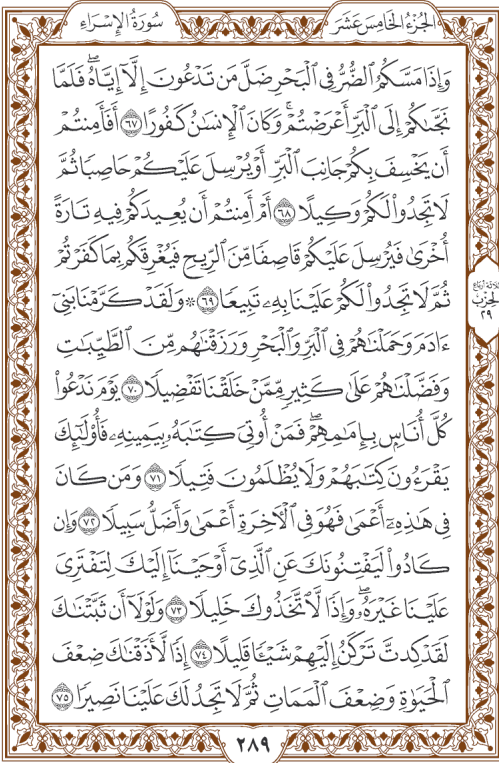 الجُزْءُ الخَامِسَ عَشَرَ
سُورَةُ الإِسْرَاءِ
وَإِذَا مَسَّكُمُ ٱلضُّرُّ فِي ٱلْبَحْرِ ضَلَّ مَن تَدْعُونَ إِلَّآ إِيَّاهُۖ فَلَمَّا
نَجَّىٰكُمْ إِلَى ٱلْبَرِّ أَعْرَضْتُمْۚ وَكَانَ ٱلْإِنسَٰنُ كَفُورًا ٦٧ أَفَأَمِنتُمْ
أَن يَخْسِفَ بِكُمْ جَانِبَ ٱلْبَرِّ أَوْ يُرْسِلَ عَلَيْكُمْ حَاصِبًا ثُمَّ
لَا تَجِدُوا۟ لَكُمْ وَكِيلًا ٦٨ أَمْ أَمِنتُمْ أَن يُعِيدَكُمْ فِيهِ تَارَةً
أُخْرَىٰ فَيُرْسِلَ عَلَيْكُمْ قَاصِفًا مِّنَ ٱلرِّيحِ فَيُغْرِقَكُم بِمَا كَفَرْتُمْ
ثُمَّ لَا تَجِدُوا۟ لَكُمْ عَلَيْنَا بِهِۦ تَبِيعًا ٦٩ ۞ وَلَقَدْ كَرَّمْنَا بَنِيٓ
ءَادَمَ وَحَمَلْنَٰهُمْ فِي ٱلْبَرِّ وَٱلْبَحْرِ وَرَزَقْنَٰهُم مِّنَ ٱلطَّيِّبَٰتِ
وَفَضَّلْنَٰهُمْ عَلَىٰ كَثِيرٍ مِّمَّنْ خَلَقْنَا تَفْضِيلًا ٧٠ يَوْمَ نَدْعُوا۟
كُلَّ أُنَاسٍۭ بِإِمَٰمِهِمْۖ فَمَنْ أُوتِيَ كِتَٰبَهُۥ بِيَمِينِهِۦ فَأُو۟لَٰٓئِكَ
يَقْرَءُونَ كِتَٰبَهُمْ وَلَا يُظْلَمُونَ فَتِيلًا ٧١ وَمَن كَانَ
فِي هَٰذِهِۦٓ أَعْمَىٰ فَهُوَ فِي ٱلْأٓخِرَةِ أَعْمَىٰ وَأَضَلُّ سَبِيلًا ٧٢ وَإِن
كَادُوا۟ لَيَفْتِنُونَكَ عَنِ ٱلَّذِيٓ أَوْحَيْنَآ إِلَيْكَ لِتَفْتَرِيَ
عَلَيْنَا غَيْرَهُۥۖ وَإِذًا لَّٱتَّخَذُوكَ خَلِيلًا ٧٣ وَلَوْلَآ أَن ثَبَّتْنَٰكَ
لَقَدْ كِدتَّ تَرْكَنُ إِلَيْهِمْ شَيْـًٔا قَلِيلًا ٧٤ إِذًا لَّأَذَقْنَٰكَ ضِعْفَ
ٱلْحَيَوٰةِ وَضِعْفَ ٱلْمَمَاتِ ثُمَّ لَا تَجِدُ لَكَ عَلَيْنَا نَصِيرًا ٧٥
ثلاثة أرباع
الحزب
٢٩
٢٨٩